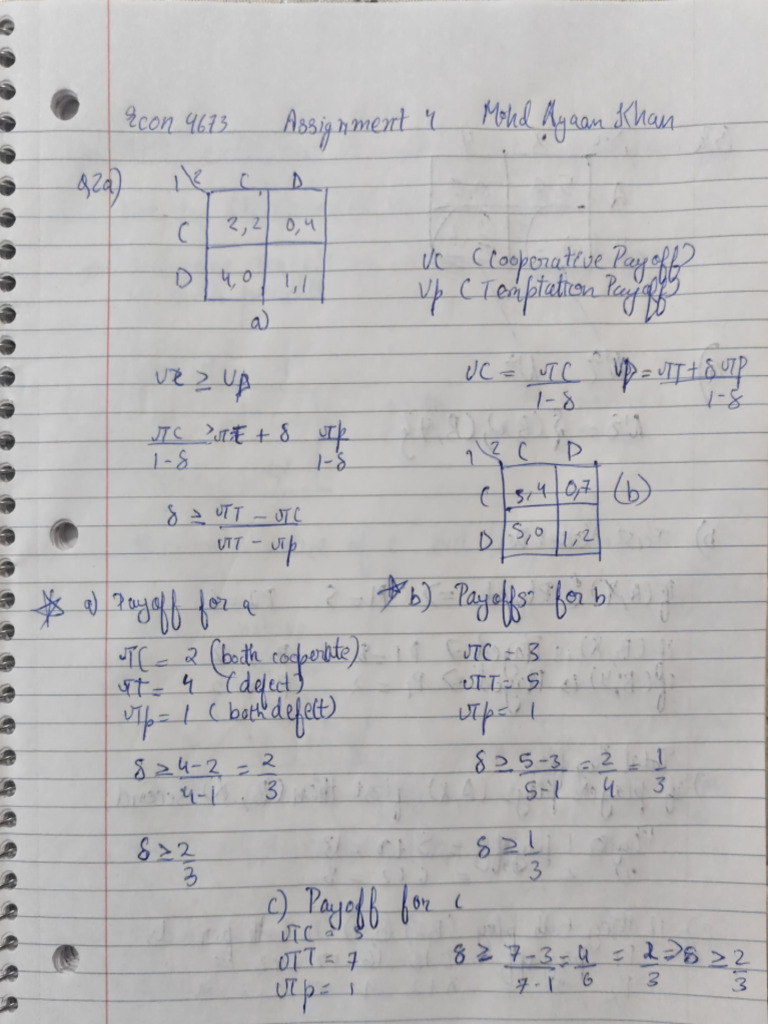 Econ 4673 Assignment 4 Mohd Ayaan Khan
Q2a) 1\2 C D
C 2,2 0,4
D 4,0 1,1
a)
VC (Cooperative Payoff)
VP (Temptation Payoff)
VC ≥ VP
VC = πC/(1-δ) VP = πT + δπP/(1-δ)
πC/(1-δ) ≥ πT + δ πP/(1-δ)
δ ≥ (πT - πC)/(πT - πP)
1\2 C D
C 3,4 0,7 (b)
D 5,0 1,2
a) Payoff for a
πC = 2 (both cooperate)
πT = 4 (defect)
πP = 1 (both defect)
δ ≥ (4-2)/(4-1) = 2/3
δ ≥ 2/3
b) Payoffs for b
πC = 3
πT = 5
πP = 1
δ ≥ (5-3)/(5-1) = 2/4 = 1/3
δ ≥ 1/3
c) Payoff for c
πC = 3
πT = 7
πP = 1
δ ≥ (7-3)/(7-1) = 4/6 = 2/3 ⇒ δ ≥ 2/3